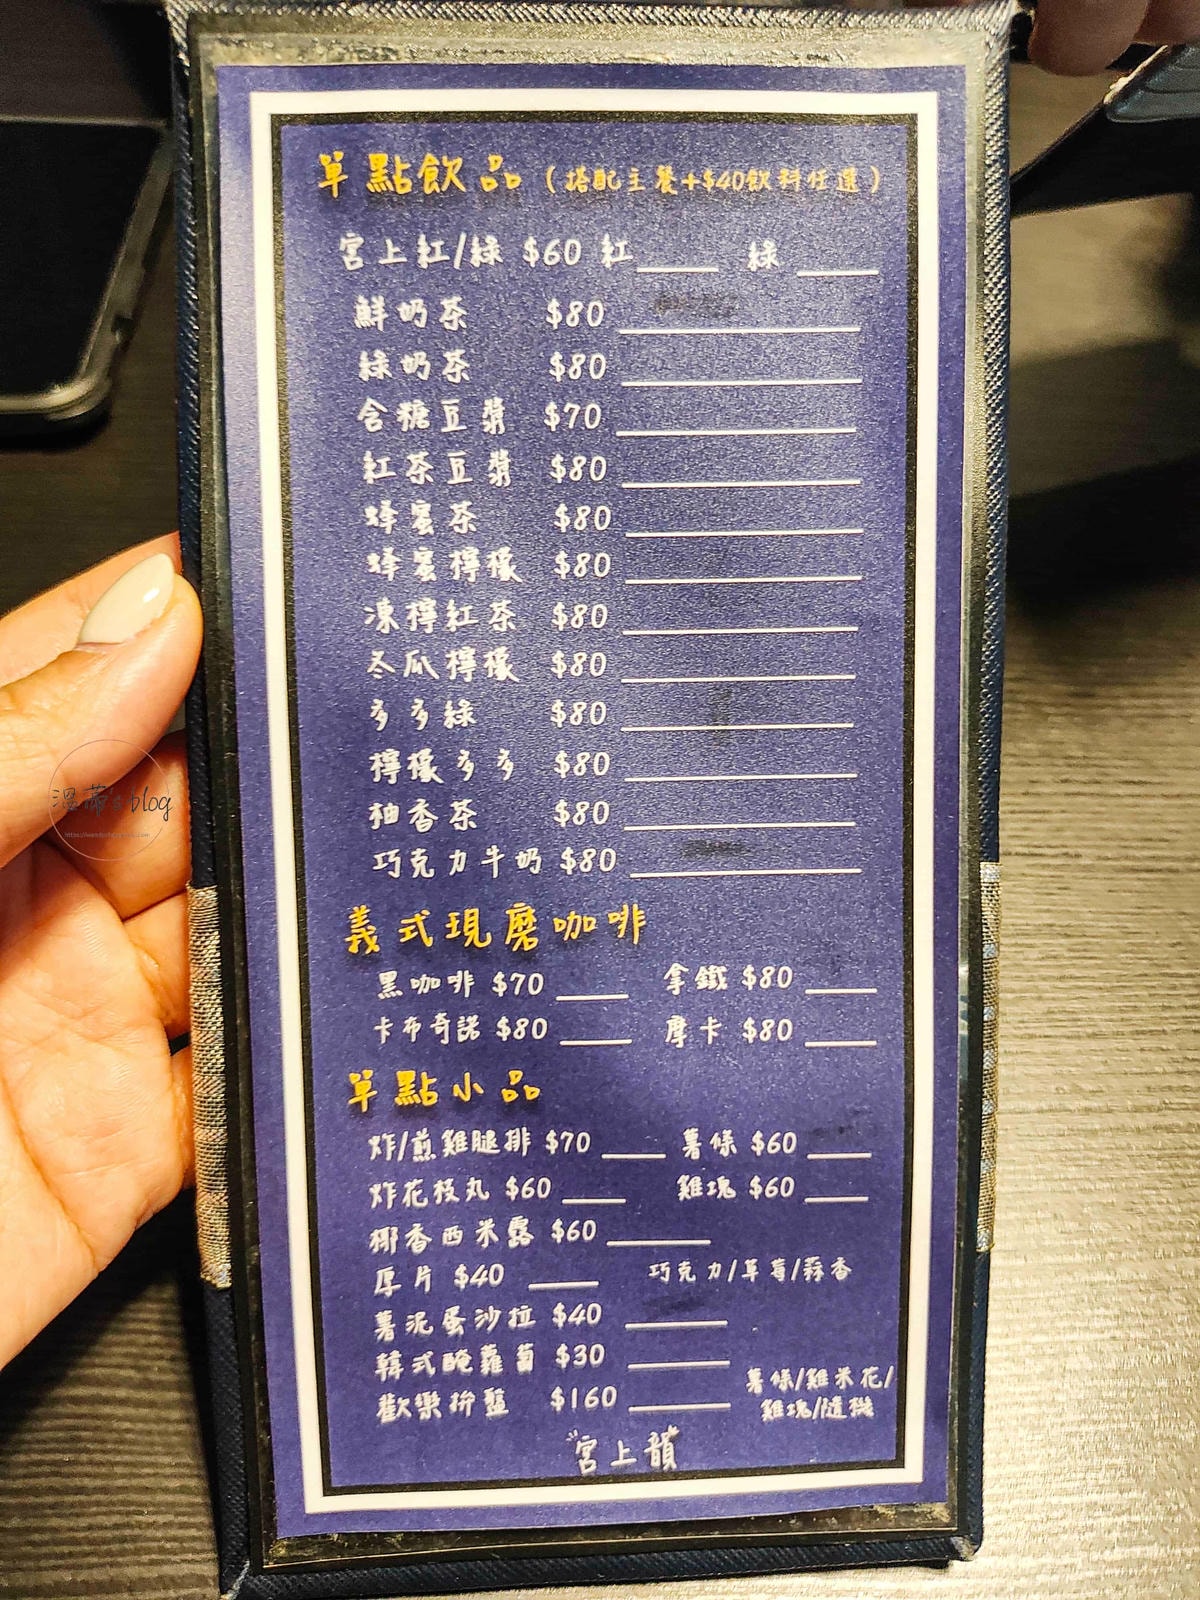 單點飲品（搭配主餐+$40飲料任選）
宮上紅/綠 $60 紅____ 綠____
鮮奶茶 $80
綠奶茶 $80
含糖豆漿 $70
紅茶豆漿 $80
蜂蜜茶 $80
蜂蜜檸檬 $80
凍檸紅茶 $80
冬瓜檸檬 $80
多多綠 $80
檸檬多多 $80
柚香茶 $80
巧克力牛奶 $80
義式現磨咖啡
黑咖啡 $70 拿鐵 $80
卡布奇諾 $80 摩卡 $80
單點小品
炸/煎雞腿排 $70 薯條 $60
炸花枝丸 $60 雞塊 $60
椰香西米露 $60
厚片 $40 巧克力/草莓/蒜香
薯泥蛋沙拉 $40
韓式醃蘿蔔 $30
歡樂拚盤 $160 薯條/雞米花/
雞塊/隨機
"宮上韻"
溫蒂's blog